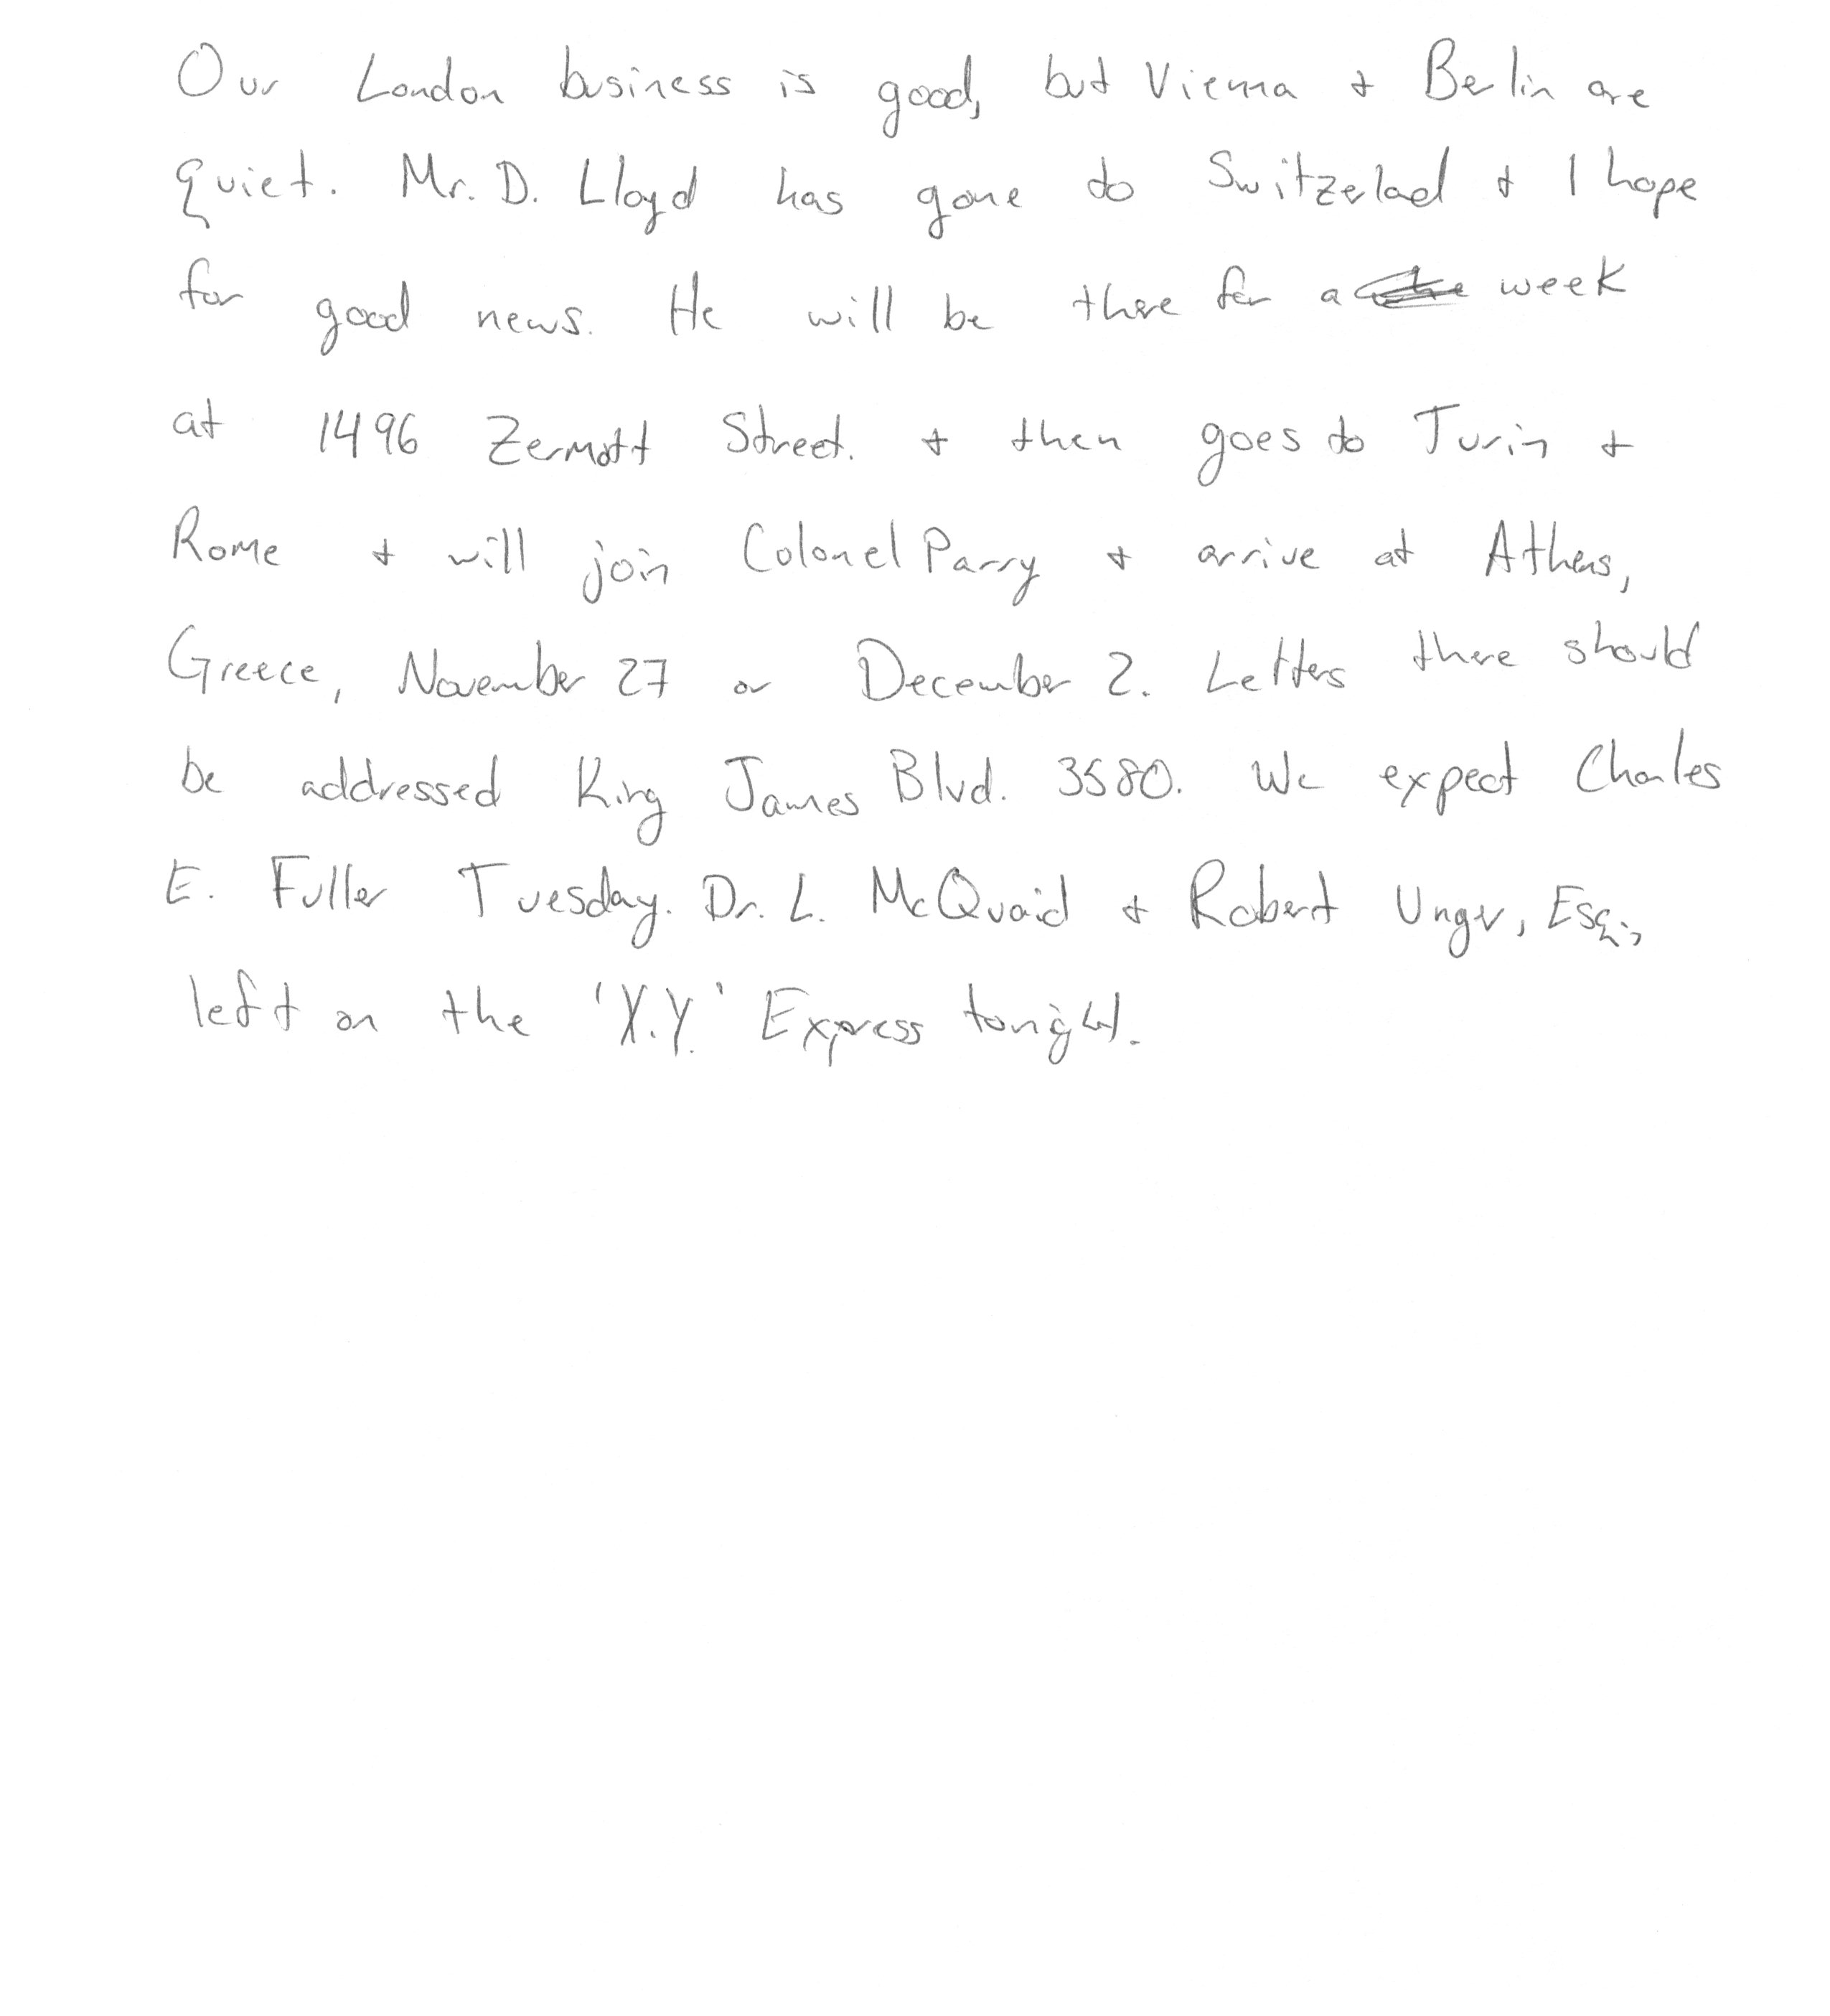 Our London business is good, but Vienna & Berlin are
quiet. Mr. D. Lloyd has gone to Switzerlad & I hope
for good news. He will be there for a week
at 1496 Zermatt Street. & then goes to Turin &
Rome & will join Colonel Parry & arrive at Athens,
Greece, November 27 or December 2. Letters there should
be addressed King James Blvd. 3580. We expect Charles
E. Fuller Tuesday. Dr. L. McQuaid & Robert Unger, Esq.,
left on the 'X.Y.' Express tonight.